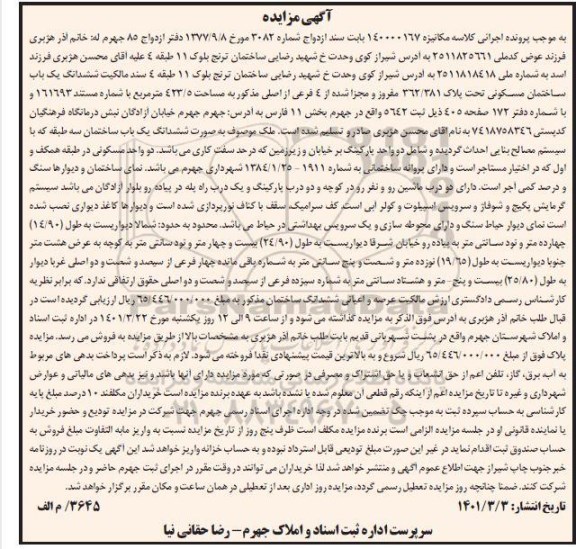 آگهی مزایده
به موجب پرونده اجرائی کلاسه مکانیزه ۱۴۰۰۰۰۱۶۷ بابت سند ازدواج شماره ۳۰۸۲ مورخ ۱۳۷۷/۹/۸ دفتر ازدواج ۸۵ جهرم له: خانم آذر هژبری
فرزند عوض کدملی ۲۵۱۱۸۲۵۶۶۱ به آدرس شیراز کوی وحدت خ شهید رضایی ساختمان ترنج بلوک ۱۱ طبقه ۴ علیه آقای محسن هژبری فرزند
اسد به شماره ملی ۲۵۱۱۸۱۸۴۱۸ به آدرس شیراز کوی وحدت خ شهید رضایی ساختمان ترنج بلوک ۱۱ طبقه ۴ سند مالکیت ششدانگ یک باب
ساختمان مسکونی تحت پلاک ۳۶۲/۳۸۱ مفروز و مجزا شده از ۴ فرعی از اصلی مذکور به مساحت ۴۲۳/۵ مترمربع با شماره مستند ۱۶۱۶۹۳ و
با شماره دفتر ۱۷۲ صفحه ۴۰۵ ذیل ثبت ۵۶۴۲ واقع در جهرم بخش ۱۱ فارس به آدرس: جهرم جهرم خیابان آزادگان نبش درمانگاه فرهنگیان
کدپستی ۷۴۱۸۷۵۸۳۴۶ به نام آقای محسن هژبری صادر و تسلیم شده است. ملک موصوف به صورت ششدانگ یک باب ساختمان سه طبقه که با
سیستم مصالح بنایی احداث گردیده و شامل دو واحد پارکینگ بر خیابان و زیرزمین که در حد سفت کاری می‌باشد. دو واحد مسکونی در طبقه همکف و
اول که در اختیار مستاجر است و دارای پروانه ساختمانی به شماره ۱۹۱۱ – ۱۳۸۴/۱/۲۵ شهرداری جهرم می باشد. نمای ساختمان و دیوارها سنگ
و درصد کمی آجر است. دارای دو درب ماشین رو و نفر رو در کوچه و دو درب پارکینگ و یک درب راه پله در پیاده رو بلوار آزادگان می باشد سیستم
گرمایش پکیج و شوفاژ و سرویس اسپیلت و کولر آبی است. کف سرامیک، سقف با کناف نورپردازی شده است و دیوارها کاغذ دیواری نصب شده
است نمای دیوار حیاط سنگ و دارای محوطه سازی و یک سرویس بهداشتی در حیاط می باشد. محدود به حدود: شمالا دیواریست به طول (۱۴/۹۰)
چهارده متر و نود سانتی متر به پیاده رو خیابان شرقا دیواریست به طول (۲۴/۹۰) بیست و چهار متر و نود سانتی متر به کوچه به عرض هشت متر
جنوبا دیواریست به طول (۱۹/۶۵) نوزده متر و شصت و پنج سانتی متر به شماره باقی مانده چهار فرعی از سیصد و شصت و دو اصلی غربا دیوار
به طول (۲۵/۸۰) بیست و پنج - متر و هشتاد سانتی متر به شماره سیزده فرعی از سیصد و شصت و دو اصلی حقوق ارتفاقی ندارد. که برابر نظریه
کارشناس رسمی دادگستری ارزش مالکیت عرصه و اعیانی ششدانگ ساختمان مذکور به مبلغ ۶۵/۴۴۶/۰۰۰/۰۰۰ ریال ارزیابی گردیده است در
قبال طلب خانم آذر هژبری به آدرس فوق الذکر به مزایده گذاشته می شود و از ساعت ۹ الی ۱۲ روز یکشنبه مورخ ۱۴۰۱/۳/۲۲ در اداره ثبت اسناد
و املاک شهرستان جهرم واقع در پشت شهربانی قدیم بابت طلب خانم آذر هژبری به مشخصات بالا از طریق مزایده به فروش می رسد. مزایده
پلاک فوق از مبلغ ۶۵/۴۴۶/۰۰۰/۰۰۰ ریال شروع و به بالاترین قیمت پیشنهادی نقدا فروخته می شود. لازم به ذکر است پرداخت بدهی های مربوط
به آب، برق، گاز، تلفن اعم از حق انشعاب و یا حق اشتراک و مصرف در صورتی که مورد مزایده دارای آنها باشد و نیز بدهی های مالیاتی و عوارض
شهرداری و غیره تا تاریخ مزایده اعم از اینکه رقم قطعی آن معلوم شده یا نشده باشد به عهده برنده مزایده است خریداران مکلفند ۱۰ درصد مبلغ پایه
کارشناسی به حساب سپرده ثبت به موجب چک تضمین شده در وجه اداره اجرای اسناد رسمی جهرم جهت شرکت در مزایده تودیع و حضور خریدار
یا نماینده قانونی او در جلسه مزایده الزامی است برنده مزایده مکلف است ظرف پنج روز از تاریخ مزایده نسبت به واریز مابه التفاوت مبلغ فروش به
حساب صندوق ثبت اقدام نماید در غیر این صورت مبلغ تودیعی قابل استرداد نبوده و به حساب خزانه واریز خواهد شد این آگهی یک نوبت در روزنامه
خبر جنوب چاپ شیراز جهت اطلاع عموم آگهی و منتشر خواهد شد لذا خریداران می توانند در وقت مقرر در اجرای ثبت جهرم حاضر و در جلسه مزایده
شرکت کنند. ضمنا چنانچه روز مزایده تعطیل رسمی گردد، مزایده روز اداری بعد از تعطیلی در همان ساعت و مکان مقرر برگزار خواهد شد.
تاریخ انتشار: ۱۴۰۱/۳/۳
۳۶۴۵/ م الف
سرپرست اداره ثبت اسناد و املاک جهرم – رضا حقانی نیا